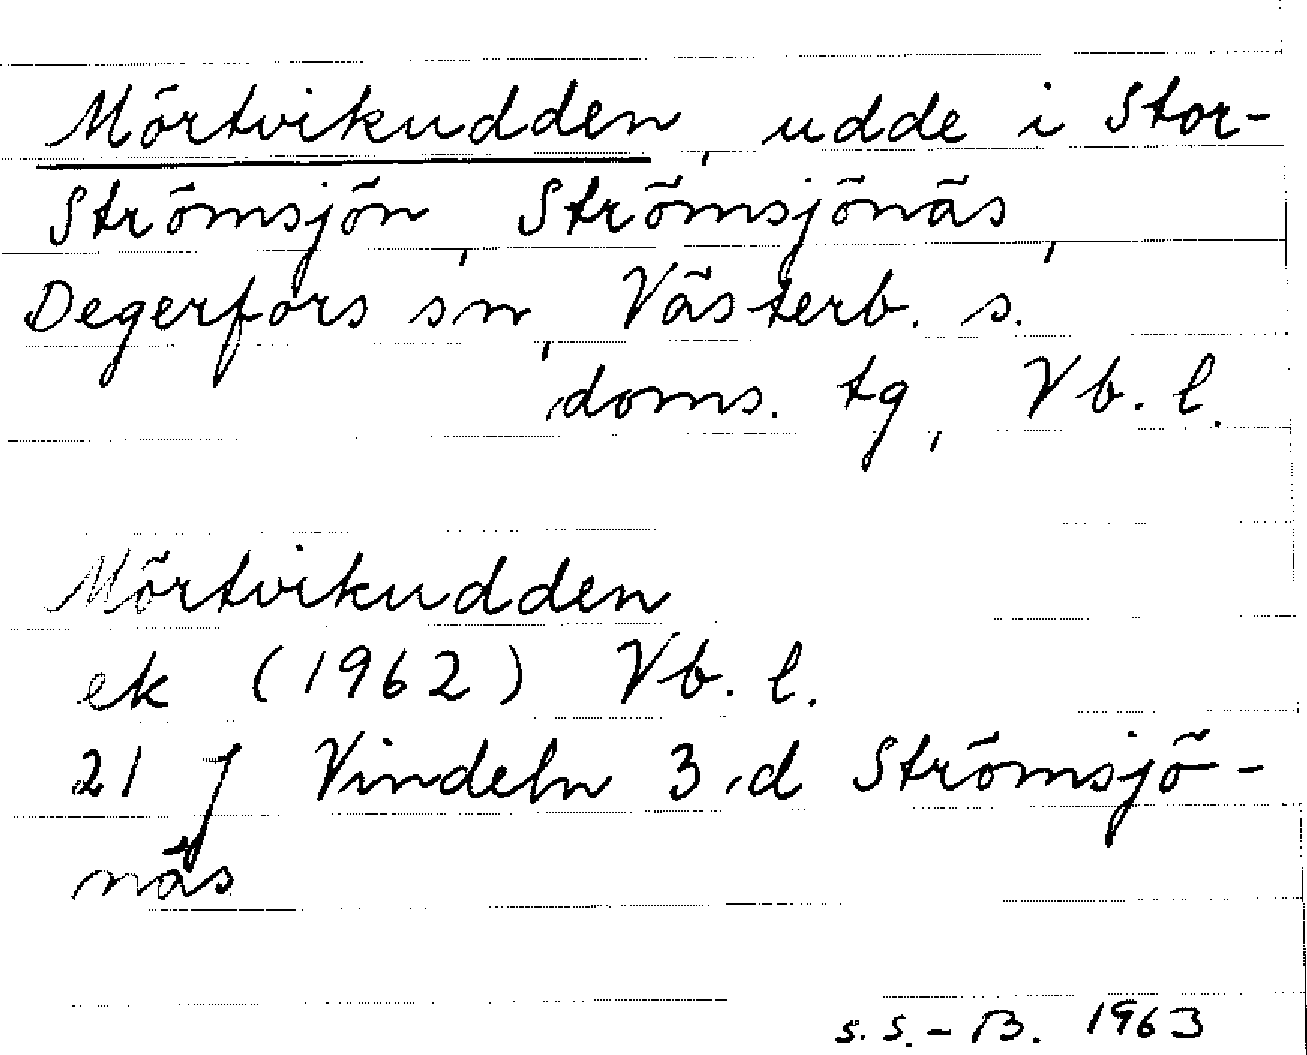 Mörtvikudden, udde i Stor-
Strömsjön, Strömsjönäs,
Degerfors sn, Västerb. s.
doms. tg, Vb. l.
Mörtvikudden
ek (1962) Vb. l.
21 J Vindeln 3 d Strömsjö-
näs
S.S.-B. 1963